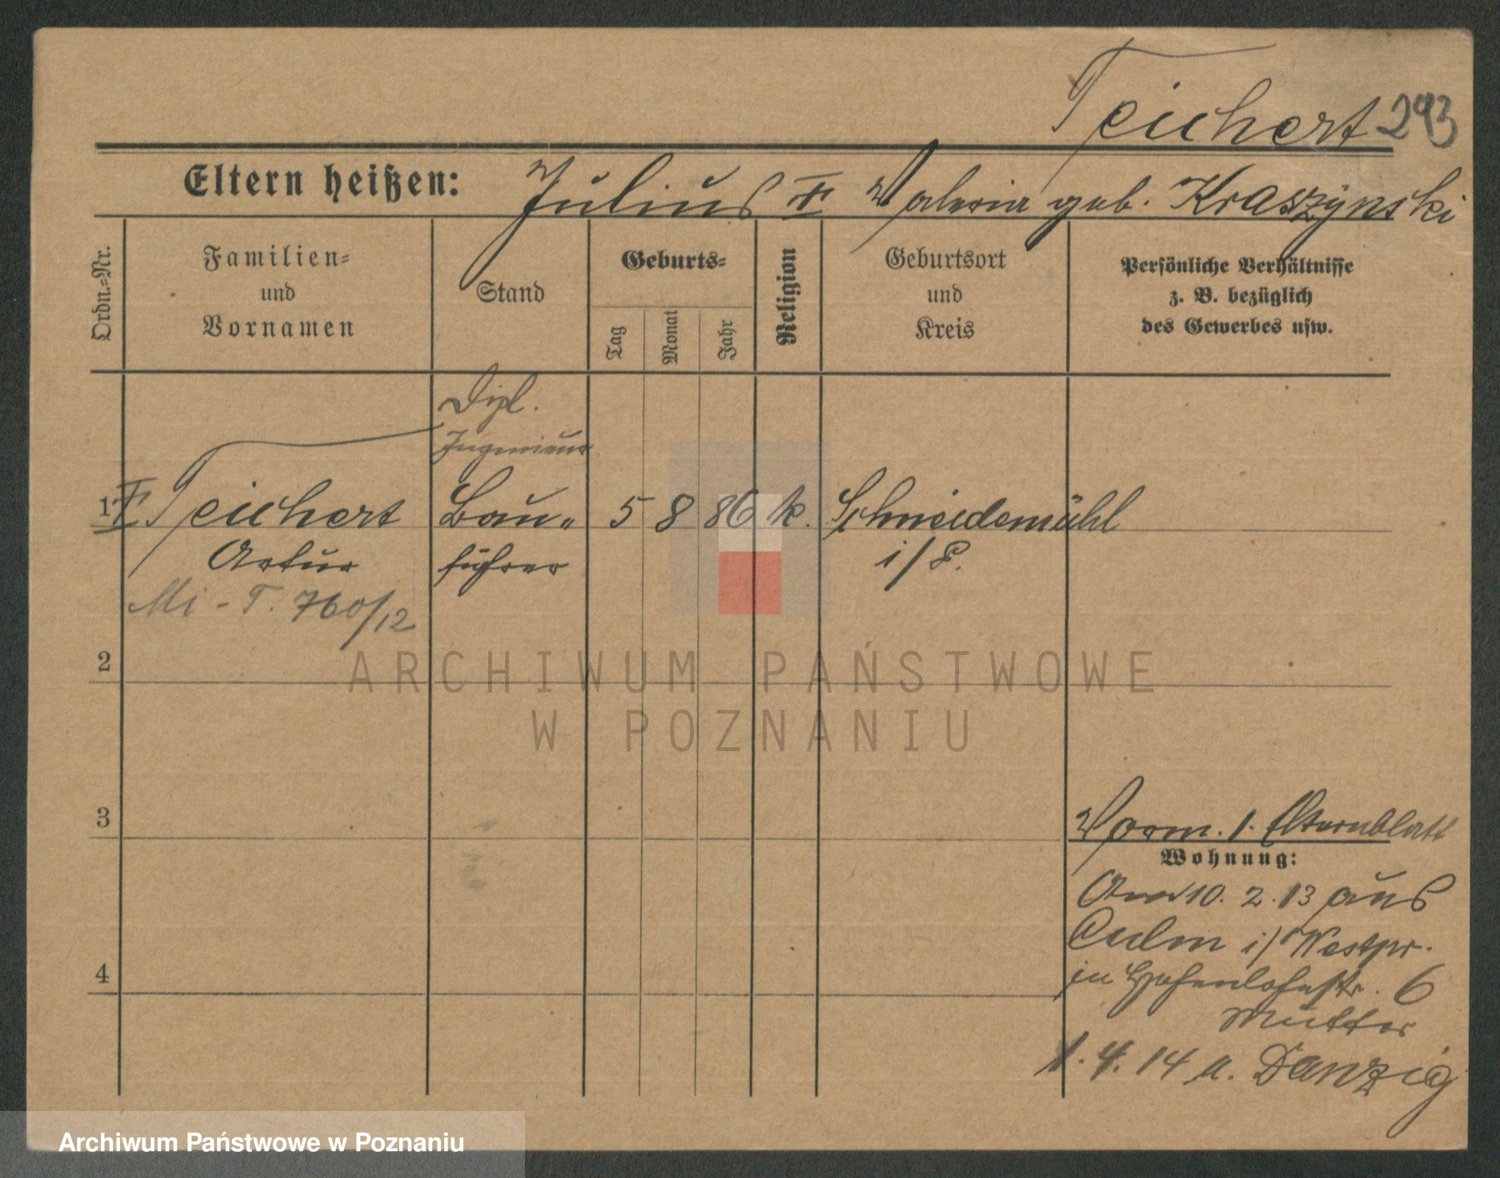 Teichert 293
Eltern heißen: Julius Valeria geb. Kraszynski
Ordn.-Nr.
Familien-
und
Vornamen
Stand
Geburts-
Tag
Monat
Jahr
Religion
Geburtsort
und
Kreis
Persönliche Verhältnisse
z. B. bezüglich
des Gewerbes usw.
Dipl.
Ingenieur
1 Teichert Bau- 5 8 86 k. Schneidemühl
Artur führer i/P.
Mi - T. 760/12
2
ARCHIWUM PAŃSTWOWE
W POZNANIU
3
Vorm. 1. Elternblatt
Wohnung:
10. 2. 13 aus
Culm i/ Westpr.
in Hohenlohestr. 6
Mutter
4
1. 4. 14 n. Danzig
Archiwum Państwowe w Poznaniu